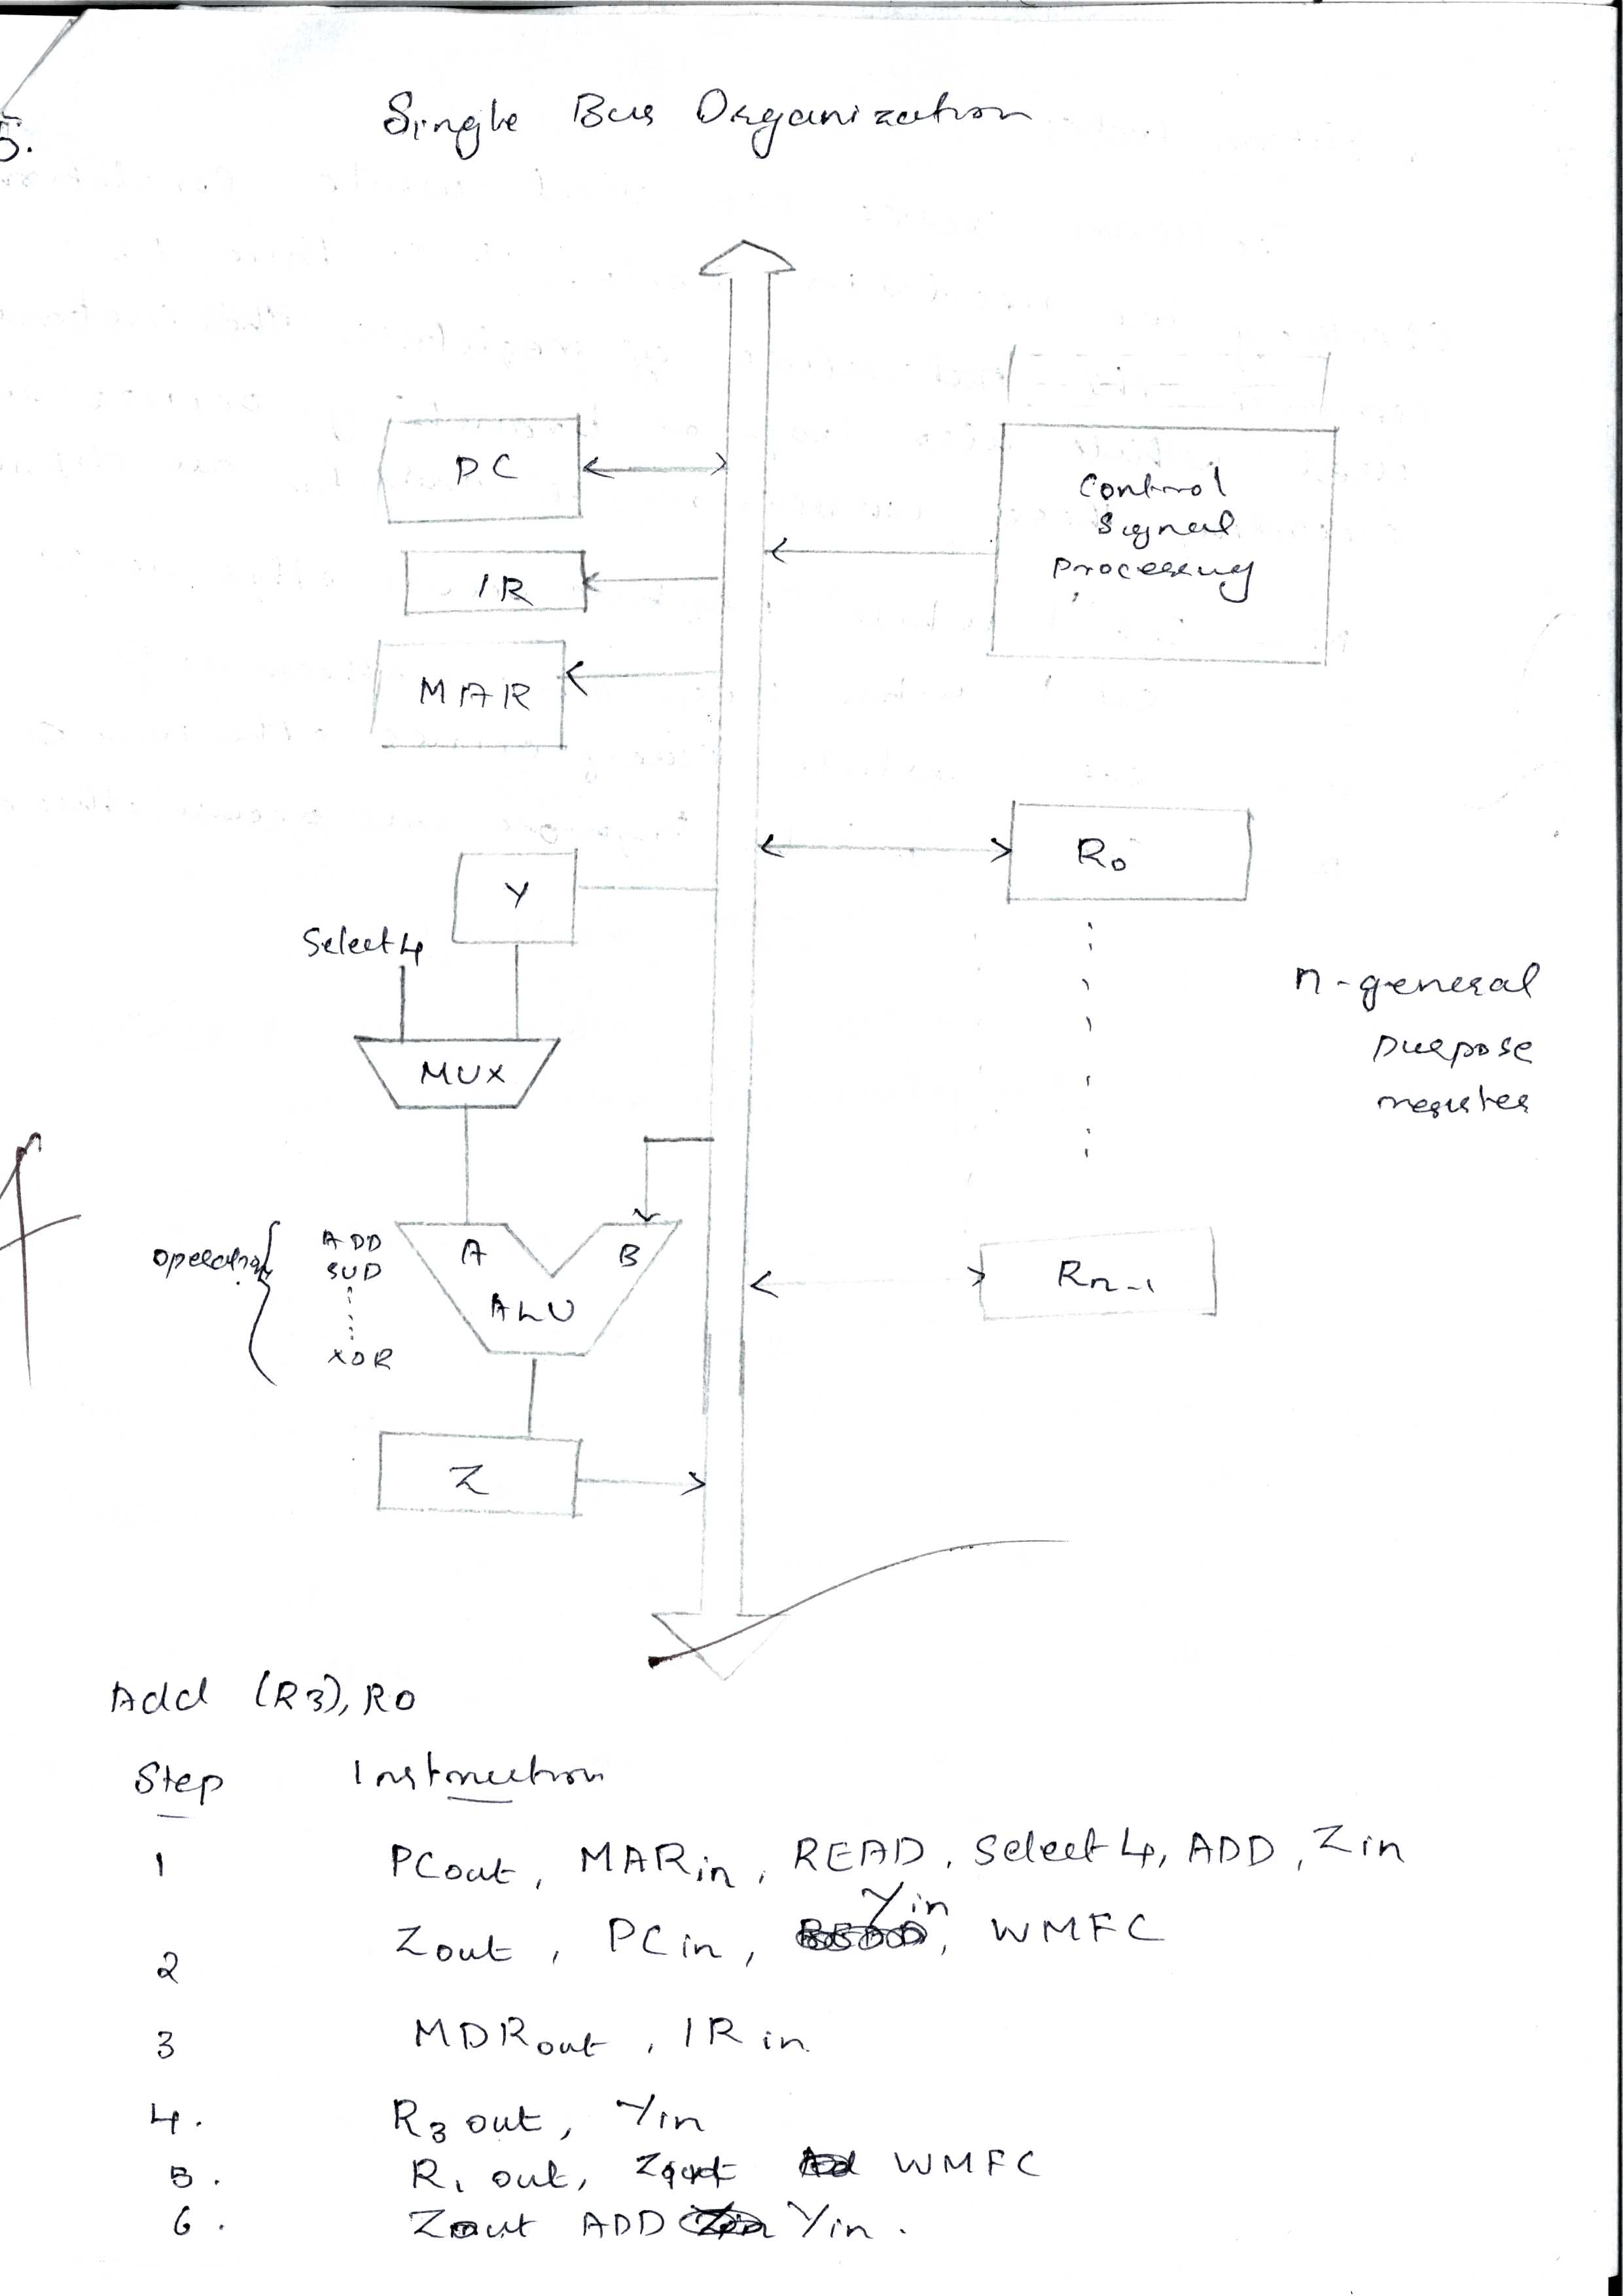 5.
Single Bus Organization
PC
Control
Signal
Processing
IR
MAR
R0
Y
Select 4
n-general
purpose
register
MUX
A
B
ALU
operation
ADD
SUD
XOR
Rn-1
Z
Add (R3), R0
Step Instruction
1 PCout, MARin, READ, Select 4, ADD, Zin
2 Zout, PCin, Yin, WMFC
3 MDRout, IRin
4. R3out, Yin
5. R1out, Zout WMFC
6. Zout ADD Yin.